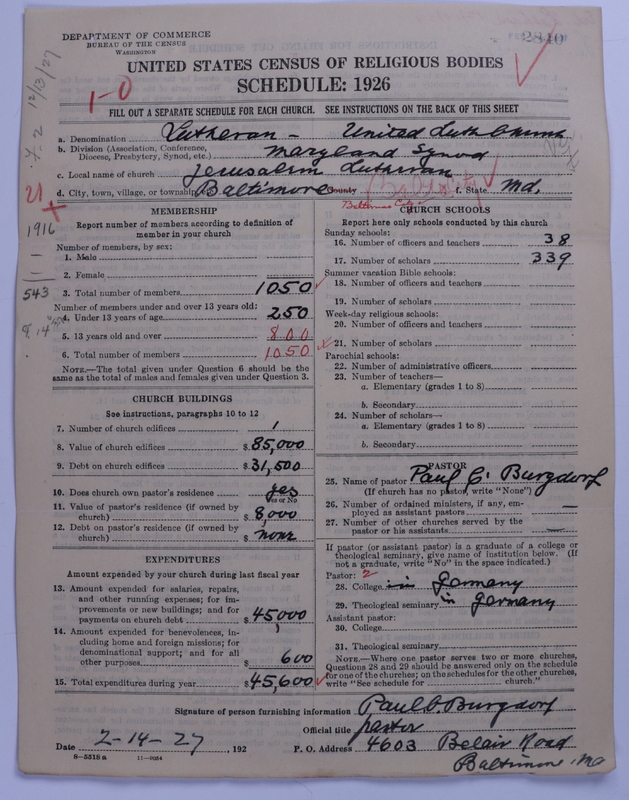 DEPARTMENT OF COMMERCE
BUREAU OF THE CENSUS
WASHINGTON
2840
UNITED STATES CENSUS OF RELIGIOUS BODIES
SCHEDULE: 1926
1-0
12/13/27
FILL OUT A SEPARATE SCHEDULE FOR EACH CHURCH. SEE INSTRUCTIONS ON THE BACK OF THIS SHEET
a. Denomination Lutheran - United Luth Church
b. Division (Association, Conference, Diocese, Presbytery, Synod, etc.) Maryland Synod
c. Local name of church Jerusalem Lutheran
d. City, town, village, or township Baltimore County f. State Md.
Baltimore City
1916
543
MEMBERSHIP
Report number of members according to definition of
member in your church
Number of members, by sex:
1. Male
2. Female
3. Total number of members 1050
Number of members under and over 13 years old:
4. Under 13 years of age 250
5. 13 years old and over 800
6. Total number of members 1050
NOTE.—The total given under Question 6 should be the
same as the total of males and females given under Question 3.
CHURCH BUILDINGS
See instructions, paragraphs 10 to 12
7. Number of church edifices 1
8. Value of church edifices $ 85,000
9. Debt on church edifices $ 31,500
10. Does church own pastor's residence yes
Yes or No
11. Value of pastor's residence (if owned by
church) $ 8,000
12. Debt on pastor's residence (if owned by
church) $ none
EXPENDITURES
Amount expended by your church during last fiscal year
13. Amount expended for salaries, repairs,
and other running expenses; for im-
provements or new buildings; and for
payments on church debt $ 45,000
14. Amount expended for benevolences, in-
cluding home and foreign missions; for
denominational support; and for all
other purposes $ 600
15. Total expenditures during year $ 45,600
CHURCH SCHOOLS
Report here only schools conducted by this church
Sunday schools:
16. Number of officers and teachers 38
17. Number of scholars 339
Summer vacation Bible schools:
18. Number of officers and teachers
19. Number of scholars
Week-day religious schools:
20. Number of officers and teachers
21. Number of scholars
Parochial schools:
22. Number of administrative officers
23. Number of teachers—
a. Elementary (grades 1 to 8)
b. Secondary
24. Number of scholars—
a. Elementary (grades 1 to 8)
b. Secondary
PASTOR
25. Name of pastor Paul C. Burgdorf
(If church has no pastor, write "None")
26. Number of ordained ministers, if any, em-
ployed as assistant pastors —
27. Number of other churches served by the
pastor or his assistants —
If pastor (or assistant pastor) is a graduate of a college or
theological seminary, give name of institution below. (If
not a graduate, write "No" in the space indicated.)
Pastor: 2
28. College in Germany
29. Theological seminary in Germany
Assistant pastor:
30. College
31. Theological seminary
NOTE.—Where one pastor serves two or more churches,
Questions 28 and 29 should be answered only on the schedule
for one of the churches; on the schedules for the other churches,
write "See schedule for church."
Signature of person furnishing information Paul C. Burgdorf
Official title pastor
Date 2-14-27, 192 P. O. Address 4603 Belair Road
Baltimore Md
8—5518 a 11—9054